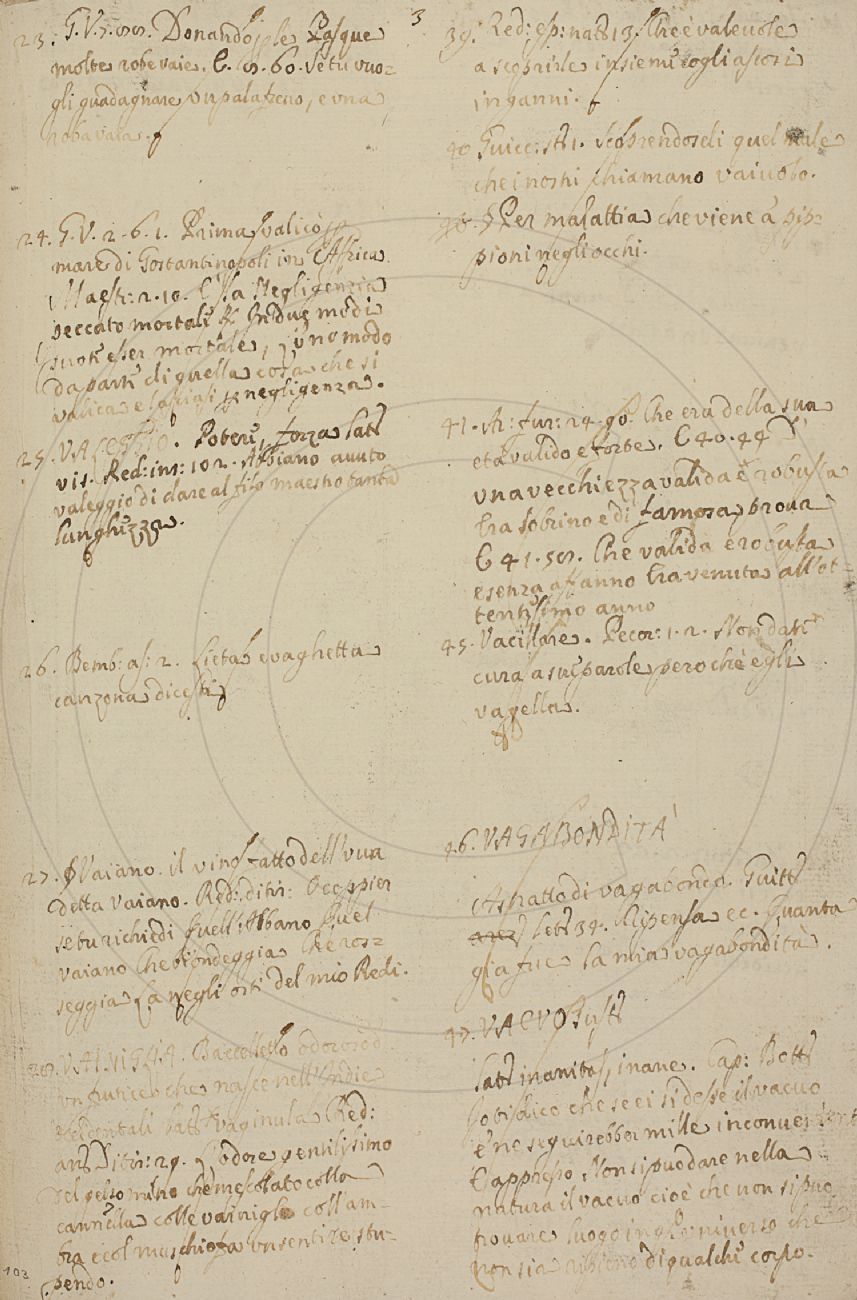 3
23. G. V. 7. Donando p le Pasque
molte robe vaie. C. 8. 60. se tu vuo=
gli guadagnare un palafreno, e una
roba vaia.
24. G. V. 2. 6. 1. Prima valicò p
mare di Gostantinopoli in Affrica
Maestr: 2. 10. È la Negligenzia
peccato mortale & In due modi
puote esser mortale, p uno modo
da parte di quella cosa che si
valica e lasciasi p negligenza.
25. VALEGGIO. Potere, forza Latt
vis. Red: ins: 102. Abbiano avuto
valeggio di dare al filo maestro tanta
lunghezza.
26. Bemb: as: 2. Lieta e vaghetta
canzona dicesti
27. § Vaiano. il vino fatto dell'uva
detta Vaiano. Red: ditir:
se tu richiedi quell'Albano quel
vaiano che biondeggia che ros=
seggia là negli orti del mio Redi.
28. VAINIGLIA. Baccelletto odoroso d
un frutice che nasce nell'Indie
occidentali Latt vaginula Red:
ann Ditir: 29. L'odore gentilissimo
del gelsomino che mescolato colla
cannella colle vainiglie coll'am-
bra e col muschio fa un sentire stu=
pendo.
103
39. Red: esp: natt 13. che è valevole
a scoprirle insieme cogli ascosi
inganni.
40 Guicc: st 1. scoprendosi quel male
che i nostri chiamano vaiuolo.
40. § Per malattia che viene à pip=
pioni negli occhi.
41. Ar: fur: 24. 98. Che era della sua
età valido e forte. C 40. 44
una vecchiezza valida e robusta
tra Sobrino e di famosa prova
C 41. 58. Che valida e robusta
e senza affanno era venuta all'ot=
tentesimo anno
45. Vacillare. Pecor: 1. 2. Non date
cura a sue parole però ché egli
vagella.
46. VAGABONDITÀ
Astratto di vagabondo. Guitt
Lett 34. Ripensa ec. Quanta
già fue la mia vagabondità.
47. VACUO Sust
Latt inanitas, inane. Cap: Bott
Io vi dico che se ci si desse il vacuo
e' ne seguirebber mille inconvenienti
E appresso Non si può dare nella
natura il vacuo cioè che non si può
trovare luogo in universo che
non sia ripieno di qualche corpo.